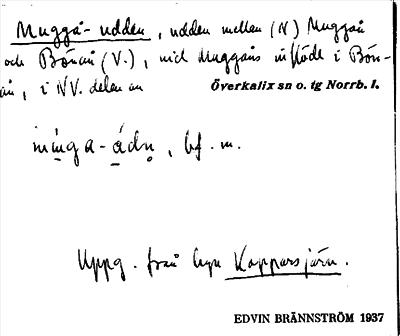 Muggå-udden, udden mellan (N) Muggån
och Bönån (V.), vid Muggåns inflöde i Bön-
ån, i NV. delen av
Överkalix sn o. tg Norrb. l.
bf. m.
Uppg. från byn Kopparsjärv.
EDVIN BRÄNNSTRÖM 1937